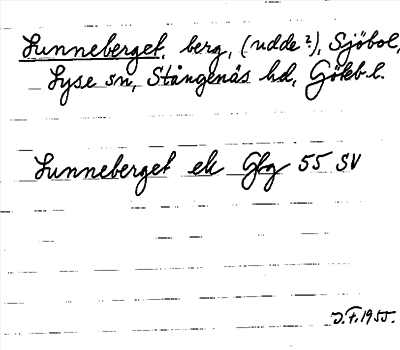 Sunneberget, berg, (udde?), Sjöbol,
Lyse sn, Stångenäs hd, Götebl.
Sunneberget ek Gbg 55 SV
J.F. 1955.